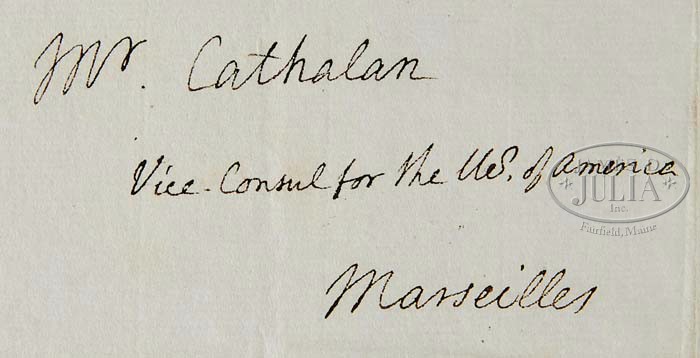 Mr. Cathalan
Vice-Consul for the US. of America
JAMES D.
JULIA
Inc.
Fairfield, Maine
Marseilles